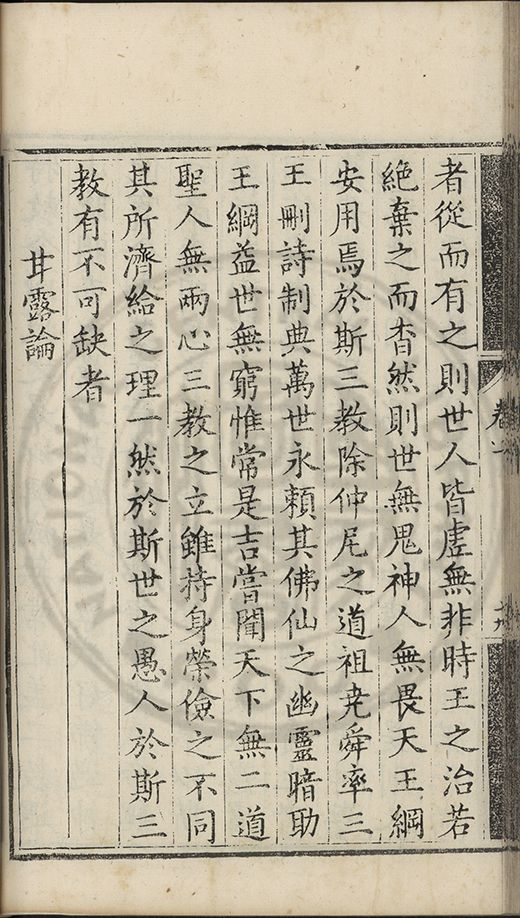 者從而有之則世人皆虛無非時王之治若
絶棄之而杳然則世無鬼神人無畏天王綱
安用焉於斯三教除仲尼之道祖尭舜率三
王刪詩制典萬世永賴其佛仙之幽靈暗助
王綱益世無窮惟常是吉嘗聞天下無二道
聖人無兩心三教之立雖持身榮儉之不同
其所濟給之理一然於斯世之愚人於斯三
教有不可缺者
甘露論